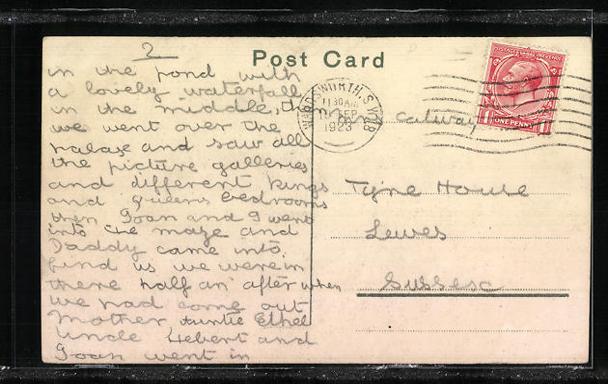 2
Post Card
in the pond with
a lovely waterfall
in the middle, then
we went over the
palace and saw all
the picture galleries
and different kings
and queens bedrooms
then Joan and I went
into the maze and
Daddy came into
find us we were in
there half an after when
we had come out
Mother Auntie Ethel
Uncle Hebert and
Joan went in
WANDSWORTH, S.W.18
11.30 AM
SEP
1923
POSTAGE REVENUE
1 ONE PENNY 1
Calway
Tyne House
Lewes
Sussesc